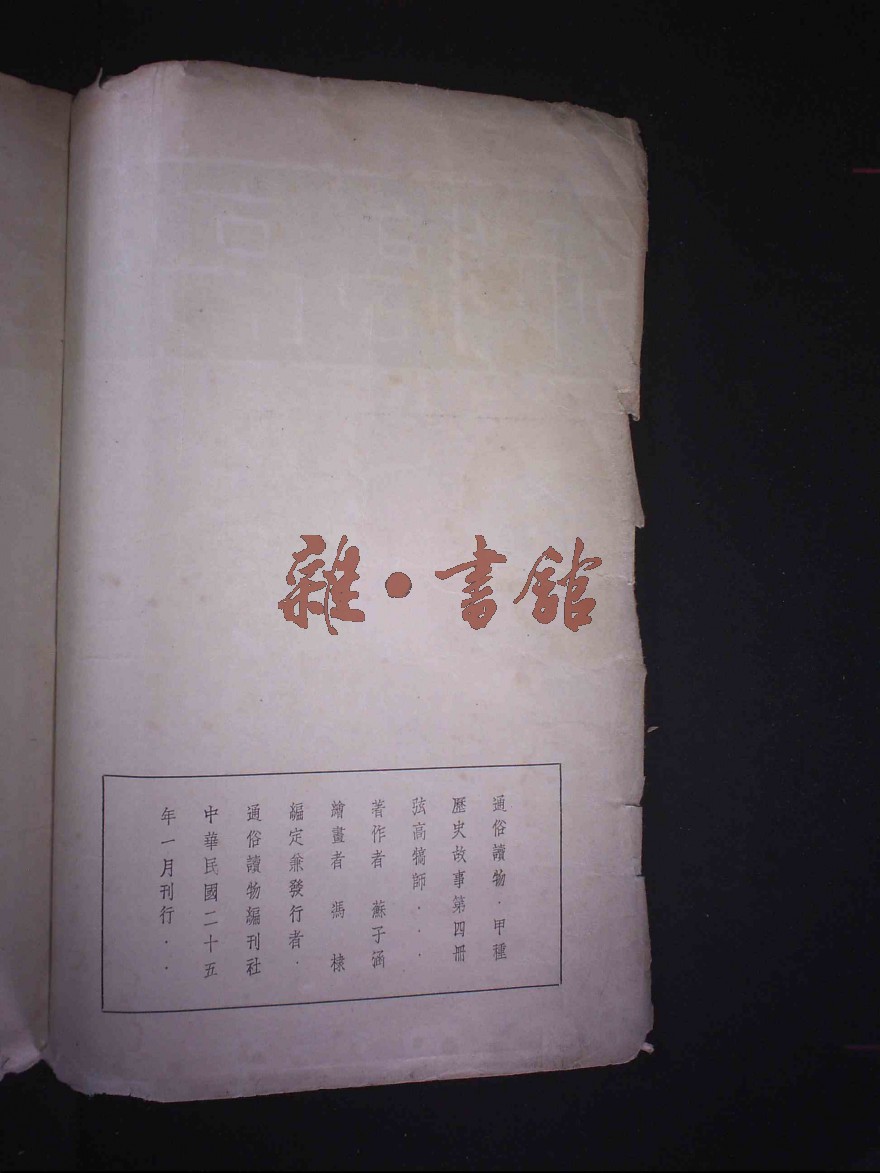 雜·書舘
通俗讀物·甲種
歷史故事第四冊
弦高犒師····
著作者 蘇子涵
繪畫者 馮棣
編定兼發行者·
通俗讀物編刊社
中華民國二十五
年一月刊行··